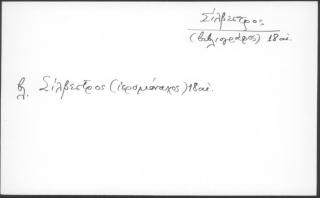 Σίλβεστρος
(βιβλιογράφος) 18 αἰ.
βλ. Σίλβεστρος (ἱερομόναχος) 18 αἰ.